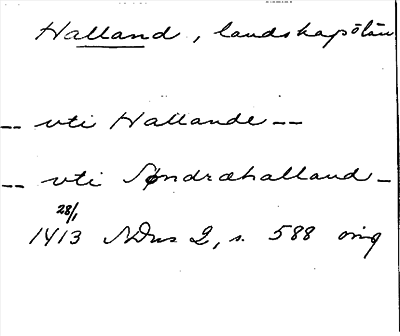 Halland, landskapölän
-- vti Hallande --
-- vti Søndrahalland -
28/1
1413 SDns 2, s. 588 orig